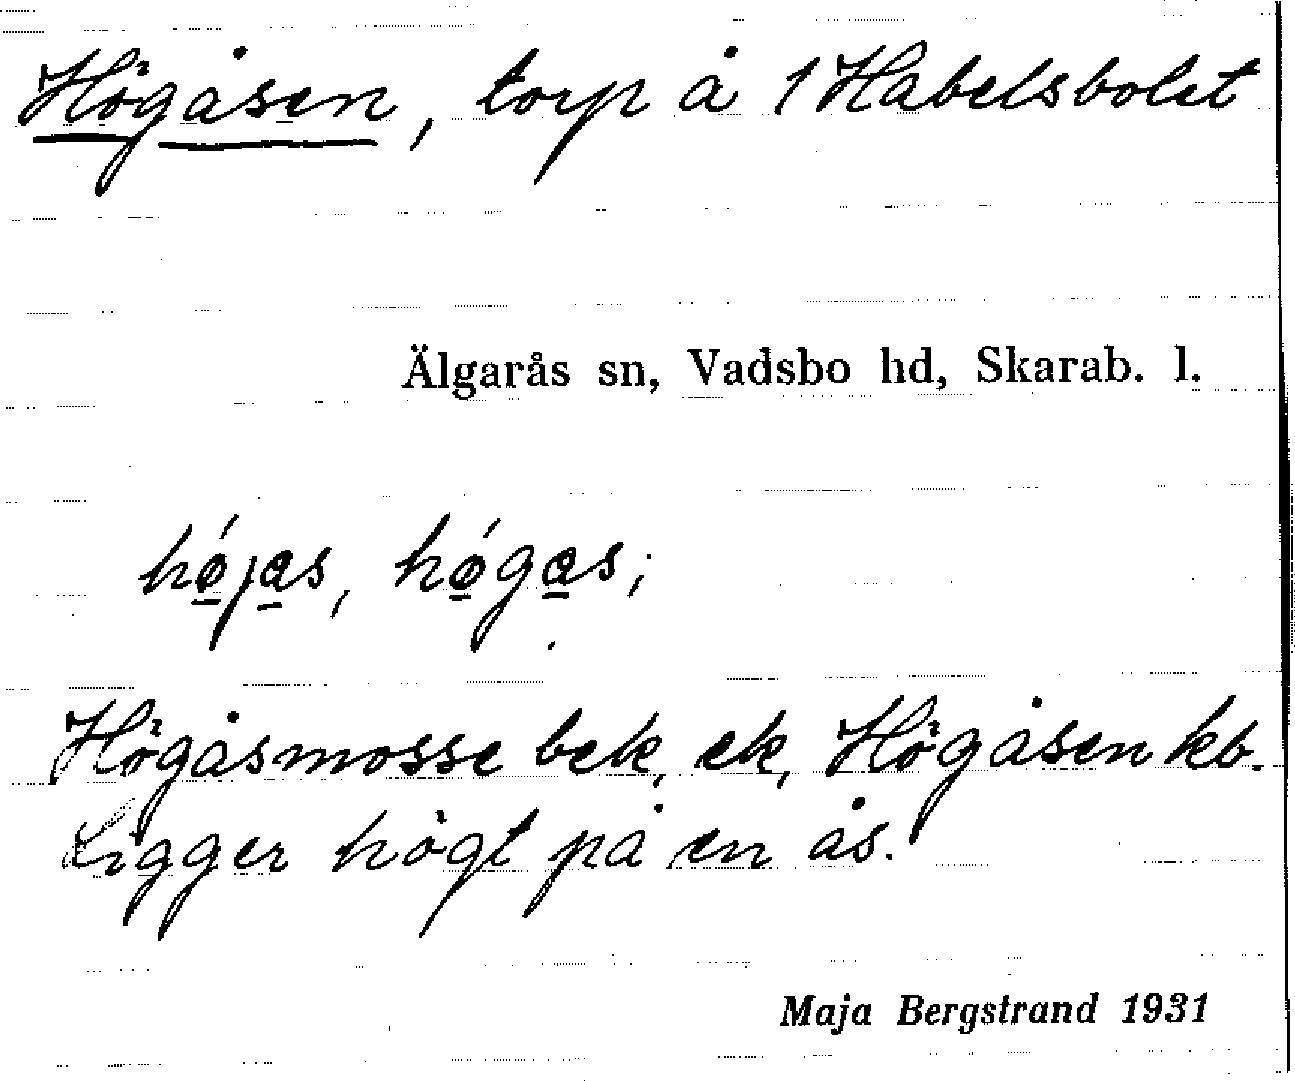 Högåsen, torp å 1 Habelsbolet
Älgarås sn, Vadsbo hd, Skarab. l.
hǿjas, hǿgas;
Högåsmosse bek, ek, Högåsen kb.
Ligger högt på en ås.
Maja Bergstrand 1931